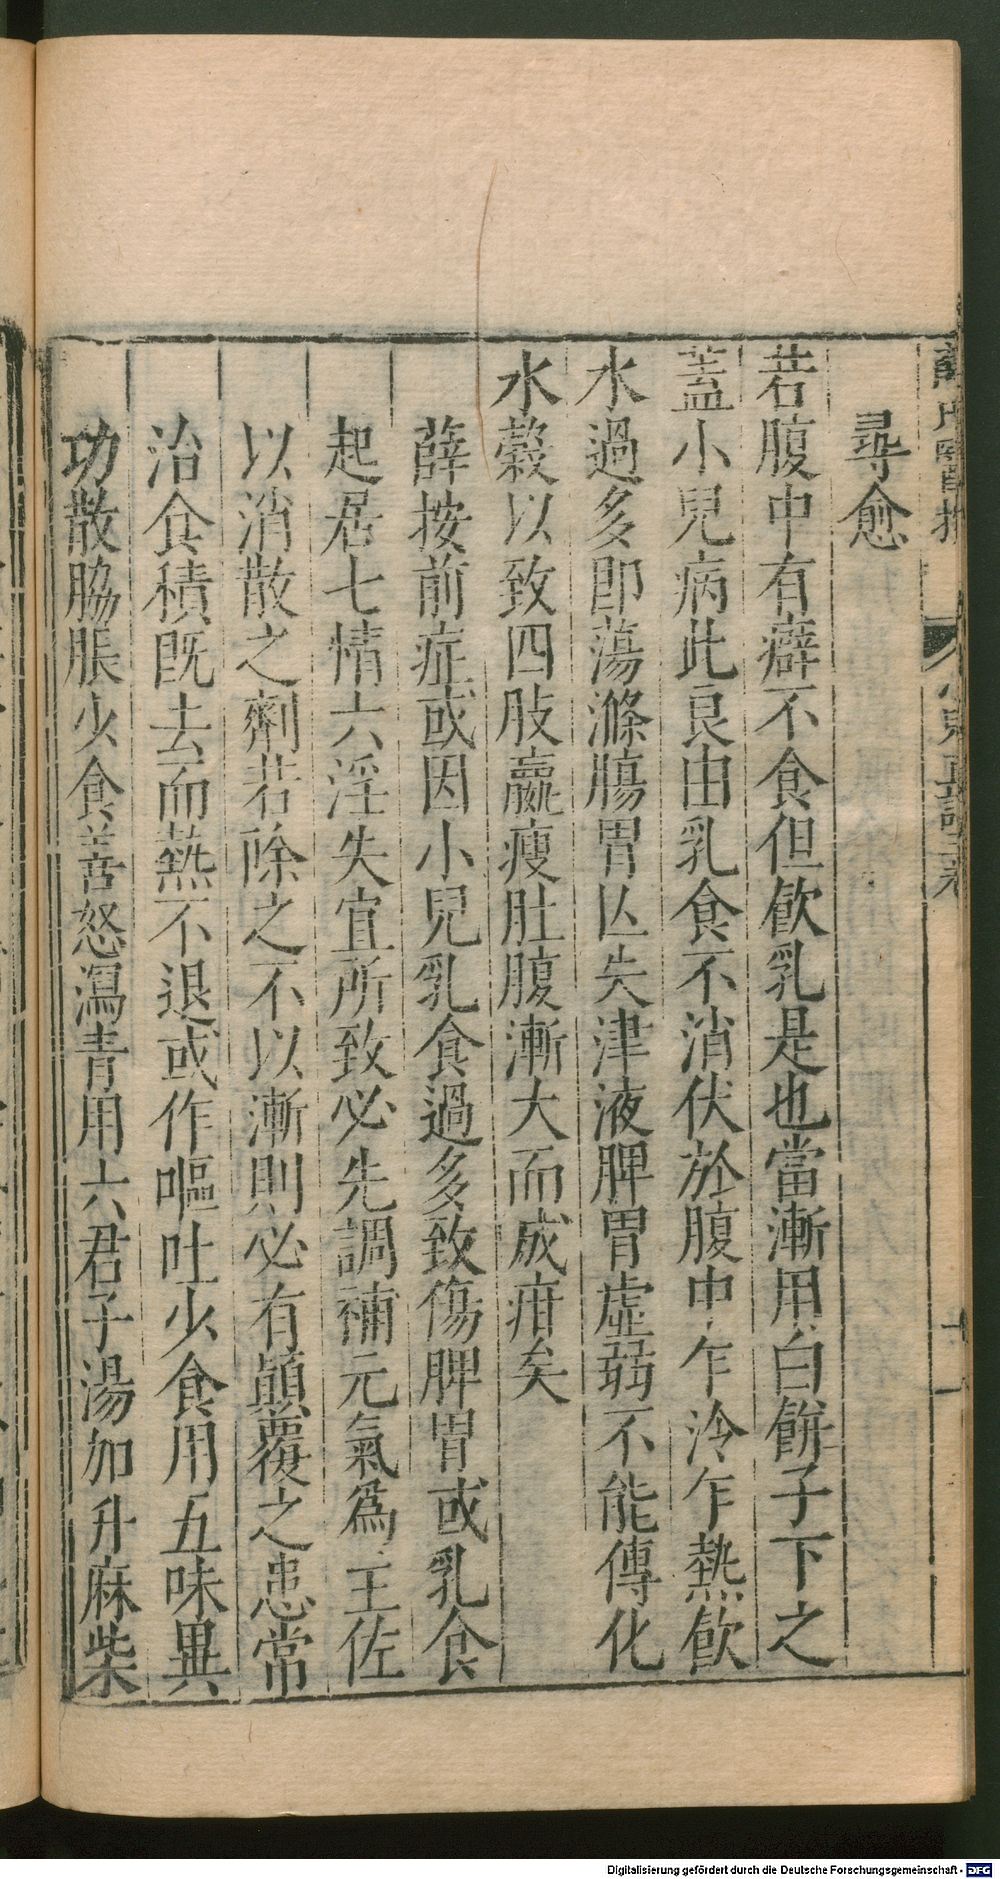 尋愈
若腹中有癖不食但飮乳是也當漸用白餅子下之
葢小兒病此良由乳食不消伏於腹中乍冷乍熱飮
水過多即蕩滌腸胃亾失津液脾胃虛弱不能傳化
水穀以致四肢羸瘦肚腹漸大而成疳矣
薛按前症或因小兒乳食過多致傷脾胃或乳食
起居七情六淫失宜所致必先調補元氣爲主佐
以消散之劑若除之不以漸則必有顚覆之患常
治食積旣去而熱不退或作嘔吐少食用五味異
功散脇脹少食善怒瀉青用六君子湯加升麻柴
Digitalisierung gefördert durch die Deutsche Forschungsgemeinschaft - DFG